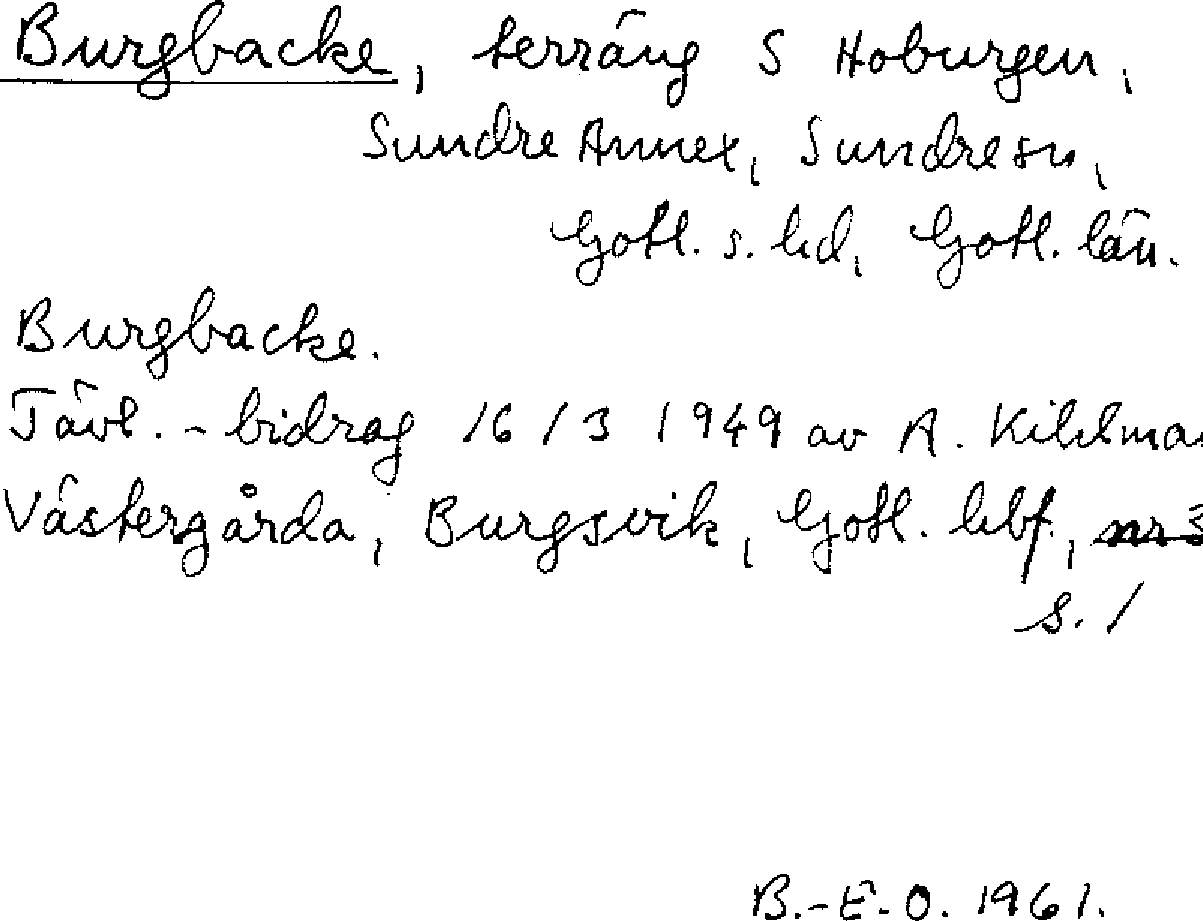 Burgbacke, terräng S Hoburgen,
Sundre Annex, Sundre sn,
Gotl. s. hd, Gotl. län.
Burgbacke.
Tävl.-bidrag 16/3 1949 av A. Kihlman
Västergårda, Burgsvik, Gotl. hbf.,
s. 1
B.-E. O. 1961.